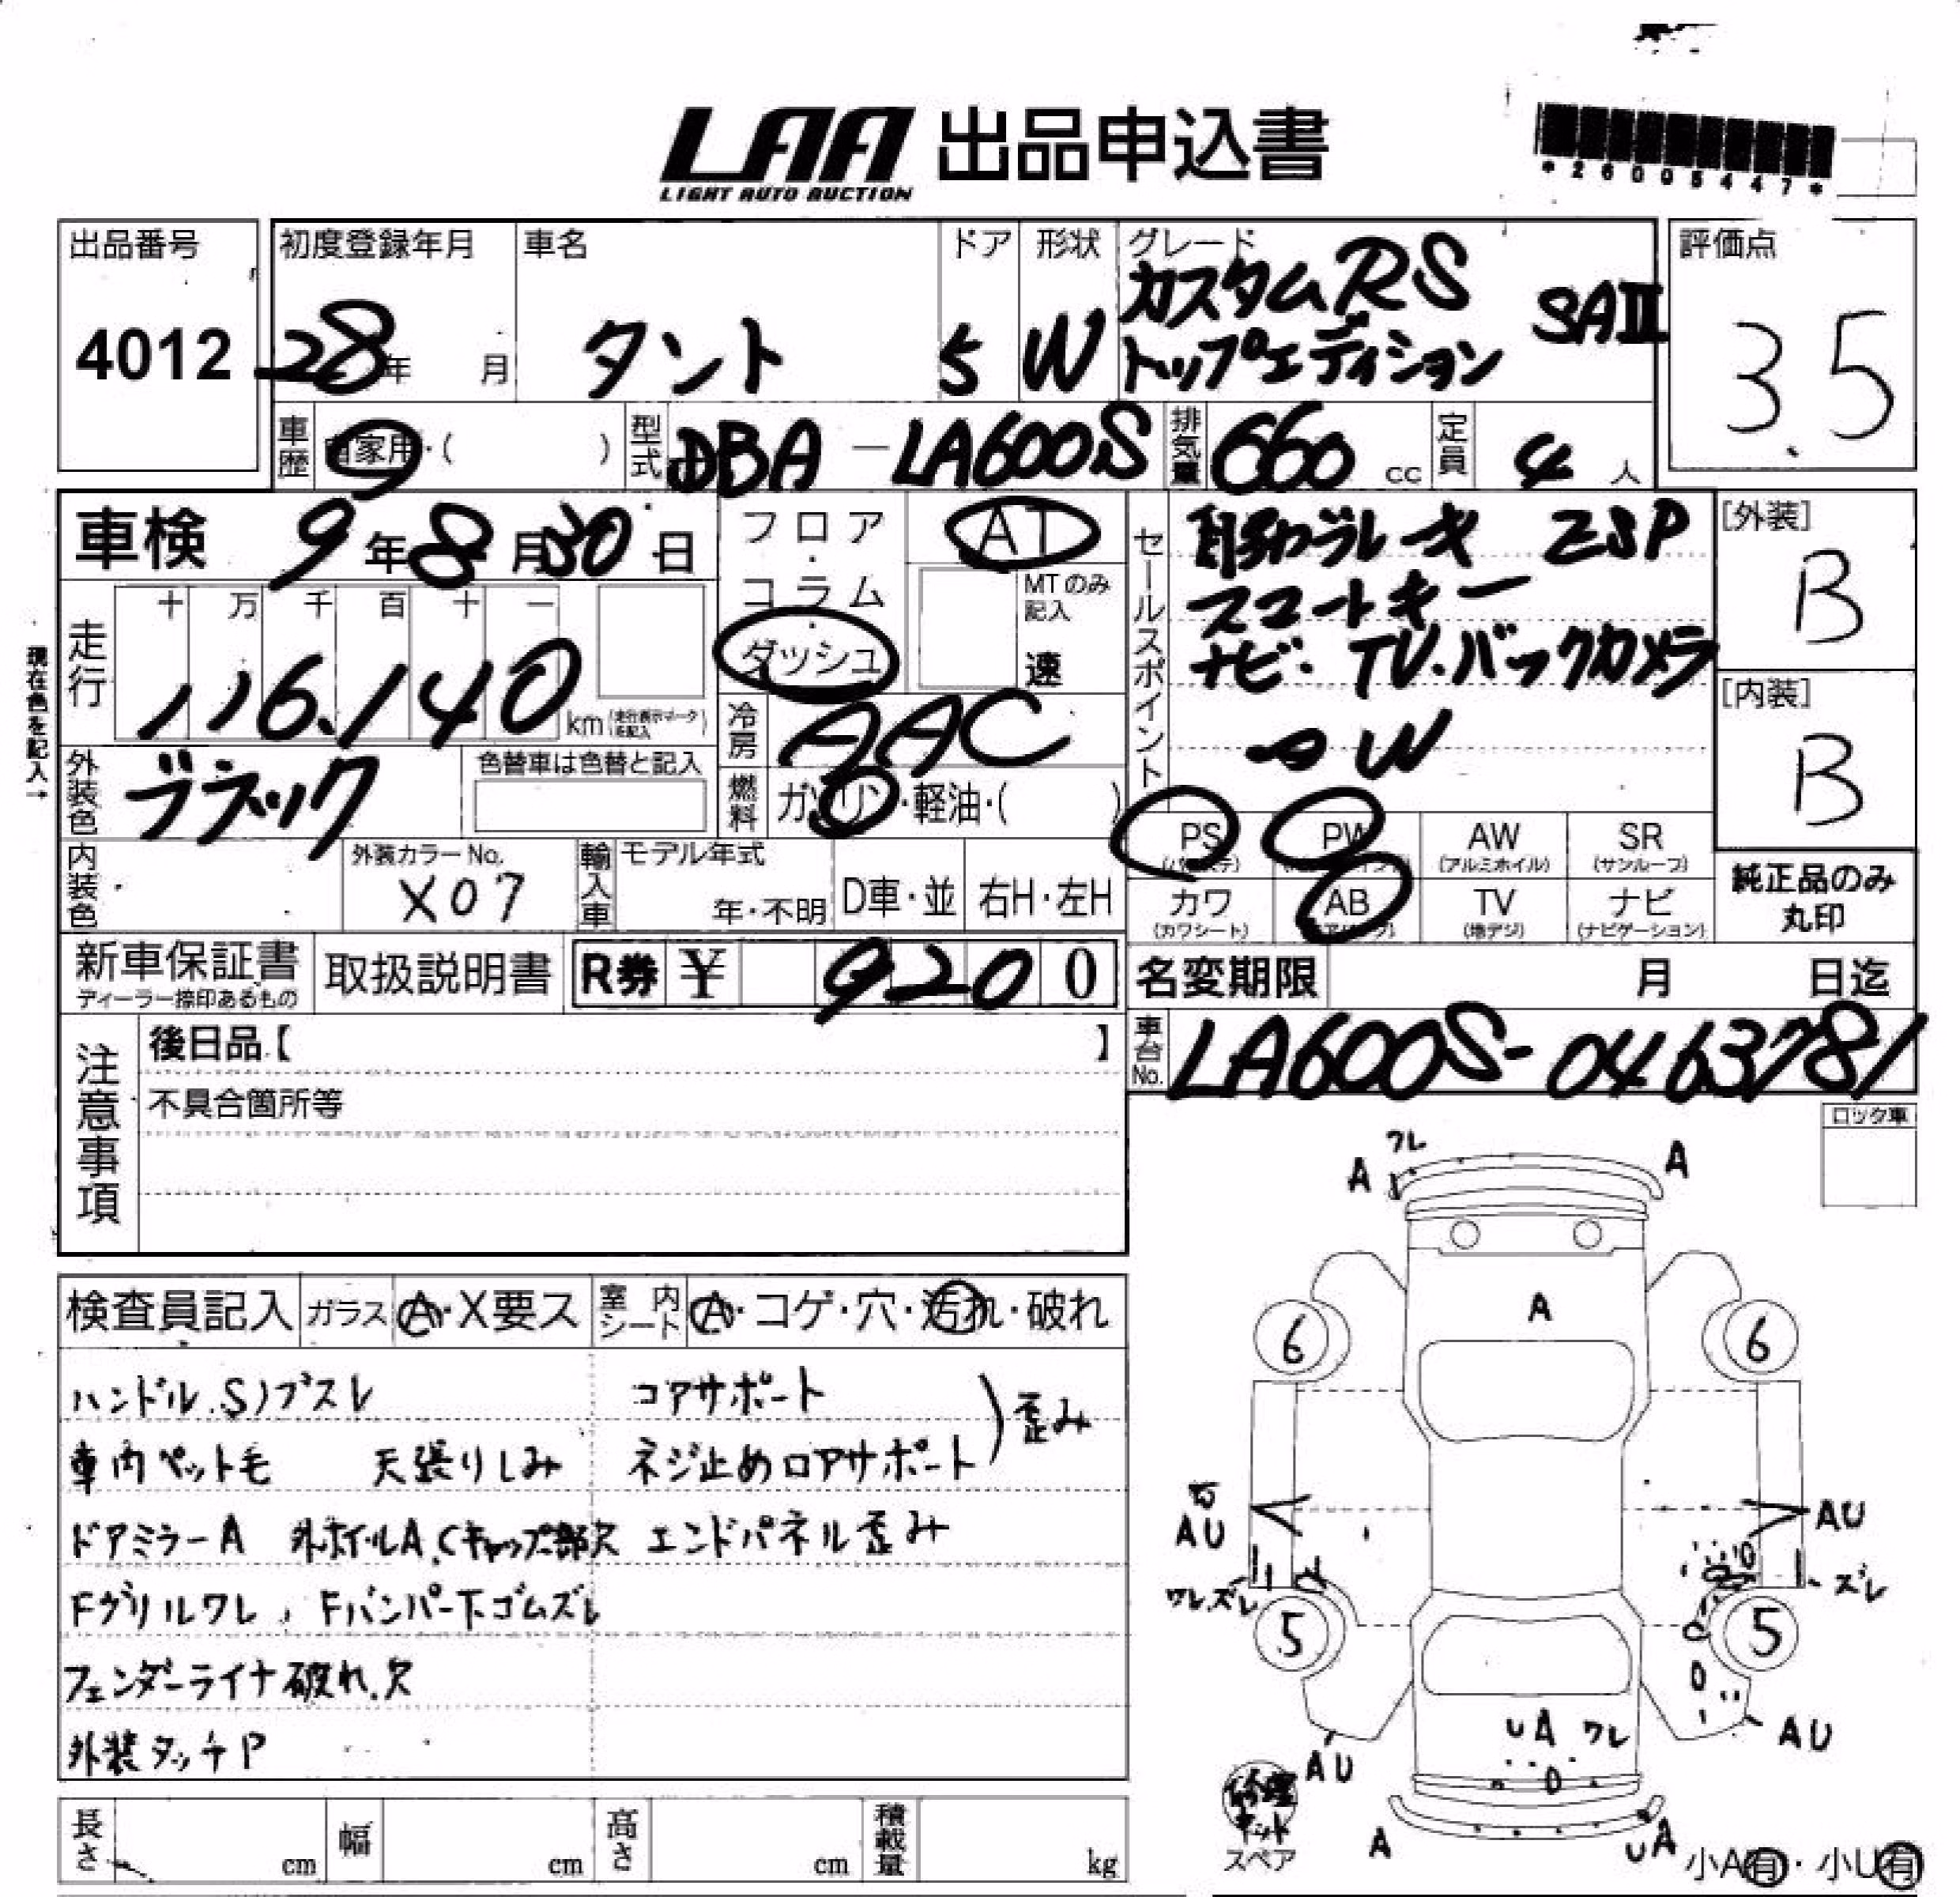 LAA 出品申込書
LIGHT AUTO AUCTION
*26005447*
出品番号
4012
初度登録年月
28年 月
車名
タント
ドア
5
形状
W
グレード
カスタムRS SAⅢ
トップエディション
評価点
3.5
車歴
自家用・( )
型式
DBA-LA600S
排気量
660 cc
定員
4 人
車検 9年8月30日
フロア・コラム・ダッシュ
AT
MTのみ記入
速
現在色を記入→
走行
十 万 千 百 十 一
116,140 km
冷房
AAC
外装色
ブラック
色替車は色替と記入
燃料
ガソリン・軽油・( )
セールスポイント
ブレーキ ESP
スマートキー
ナビ・TV・バックカメラ
W
[外装]
B
[内装]
B
PS PW AW SR
(パワステ) (アルミホイル) (サンルーフ)
カワ AB TV ナビ
(カワシート) (エアバッグ) (地デジ) (ナビゲーション)
純正品のみ
丸印
内装色
外装カラーNo.
X07
輸入車
モデル年式
年・不明
D車・並
右H・左H
新車保証書
ディーラー捺印あるもの
取扱説明書
R券 ¥ 9200
名変期限 月 日迄
車台No.
LA600S-0463781
注意事項
後日品【 】
不具合箇所等
ロック車
検査員記入
ガラス A・X要ス
室内シート A・コゲ・穴・汚れ・破れ
ハンドル、S)ブスレ
車内ペット毛 天張りしみ
ドアミラーA 外ホイルA、Cキャップ部欠
Fグリルワレ、Fバンパー下ゴムズレ
フェンダーライナ破れ、欠
外装タッチP
コアサポート
ネジ止めロアサポート
)歪み
エンドパネル歪み
ワレ
A
A
A
6
6
AU
AU
ワレ、ズレ
ズレ
5
5
UA ワレ
AU
AU
A
UA
修理キット
スペア
小A有・小U有
長さ cm
幅 cm
高さ cm
積載量 kg